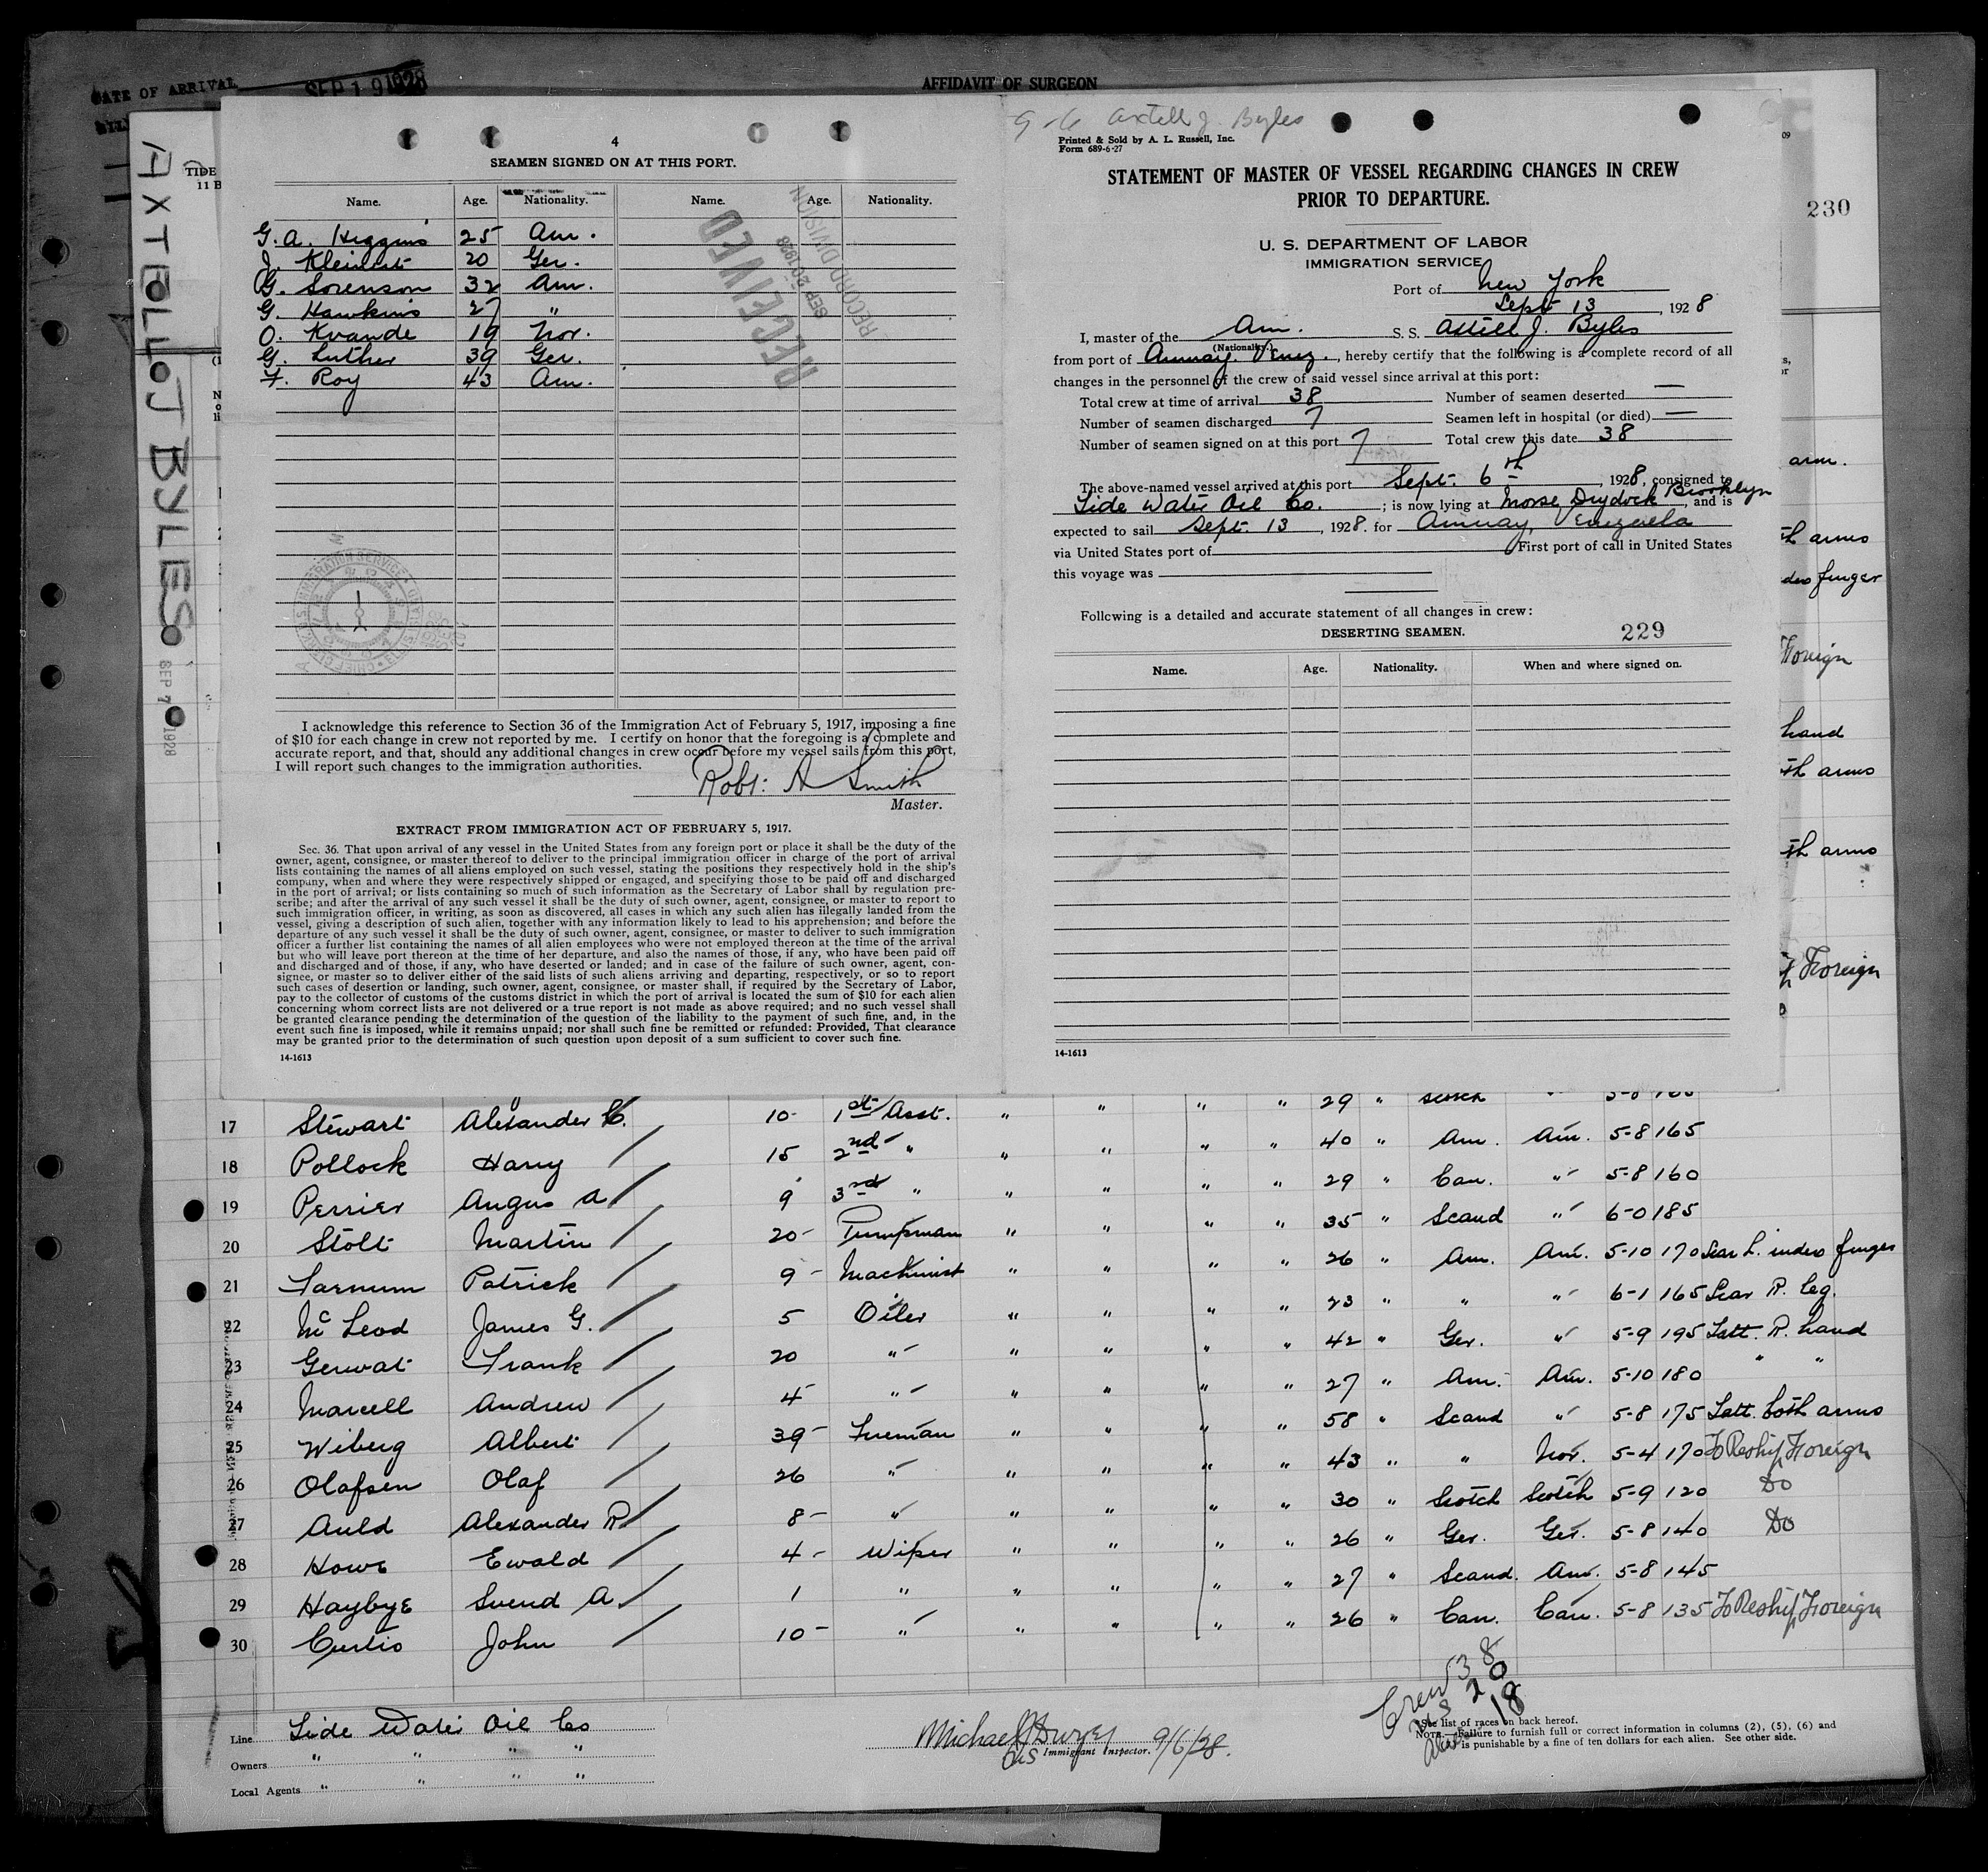 DATE OF ARRIVAL SEP 19 1928
AFFIDAVIT OF SURGEON
AXTELL J BYLES
SEP 7 1928
TIDE
11 B
4
SEAMEN SIGNED ON AT THIS PORT.
Name. Age. Nationality. Name. Age. Nationality.
G. A. Higgins 25 Am.
J. 20 Ger.
G. Sorenson 32 Am.
G. Hawkins 27 "
O. Kvande 19 Nor.
G. Luther 39 Ger.
F. Roy 43 Am.
RECEIVED
SEP 20 1928
RECORD DIVISION
I acknowledge this reference to Section 36 of the Immigration Act of February 5, 1917, imposing a fine
of $10 for each change in crew not reported by me. I certify on honor that the foregoing is a complete and
accurate report, and that, should any additional changes in crew occur before my vessel sails from this port,
I will report such changes to the immigration authorities.
Robt: A Smith
Master.
EXTRACT FROM IMMIGRATION ACT OF FEBRUARY 5, 1917.
Sec. 36. That upon arrival of any vessel in the United States from any foreign port or place it shall be the duty of the
owner, agent, consignee, or master thereof to deliver to the principal immigration officer in charge of the port of arrival
lists containing the names of all aliens employed on such vessel, stating the positions they respectively hold in the ship's
company, when and where they were respectively shipped or engaged, and specifying those to be paid off and discharged
in the port of arrival; or lists containing so much of such information as the Secretary of Labor shall by regulation pre-
scribe; and after the arrival of any such vessel it shall be the duty of such owner, agent, consignee, or master to report to
such immigration officer, in writing, as soon as discovered, all cases in which any such alien has illegally landed from the
vessel, giving a description of such alien, together with any information likely to lead to his apprehension; and before the
departure of any such vessel it shall be the duty of such owner, agent, consignee, or master to deliver to such immigration
officer a further list containing the names of all alien employees who were not employed thereon at the time of the arrival
but who will leave port thereon at the time of her departure, and also the names of those, if any, who have been paid off
and discharged and of those, if any, who have deserted or landed; and in case of the failure of such owner, agent, con-
signee, or master so to deliver either of the said lists of such aliens arriving and departing, respectively, or so to report
such cases of desertion or landing, such owner, agent, consignee, or master shall, if required by the Secretary of Labor,
pay to the collector of customs of the customs district in which the port of arrival is located the sum of $10 for each alien
concerning whom correct lists are not delivered or a true report is not made as above required; and no such vessel shall
be granted clearance pending the determination of the question of the liability to the payment of such fine, and, in the
event such fine is imposed, while it remains unpaid; nor shall such fine be remitted or refunded: Provided, That clearance
may be granted prior to the determination of such question upon deposit of a sum sufficient to cover such fine.
14-1613
Axtell J. Byles
Printed & Sold by A. L. Russell, Inc.
Form 689-6-27
STATEMENT OF MASTER OF VESSEL REGARDING CHANGES IN CREW
PRIOR TO DEPARTURE.
U. S. DEPARTMENT OF LABOR
IMMIGRATION SERVICE
Port of New York
Sept 13, 1928
I, master of the Am. S. S. Axtell J. Byles
(Nationality.)
from port of Amuay. Venez., hereby certify that the following is a complete record of all
changes in the personnel of the crew of said vessel since arrival at this port:
Total crew at time of arrival 38 Number of seamen deserted —
Number of seamen discharged 7 Seamen left in hospital (or died) —
Number of seamen signed on at this port 7 Total crew this date 38
The above-named vessel arrived at this port Sept. 6th, 1928, consigned to
Tide Water Oil Co.; is now lying at Morse Drydock Brooklyn, and is
expected to sail Sept. 13, 1928. for Amuay, Venezuela
via United States port of First port of call in United States
this voyage was
Following is a detailed and accurate statement of all changes in crew:
DESERTING SEAMEN. 229
Name. Age. Nationality. When and where signed on.
14-1613
09
230
arm.
th arms
dex finger
Foreign
hand
th arms
th arms
Foreign
29 " Scotch
17 Stewart Alexander C. 10- 1st Asst. " " " " 40 " Am. Am. 5-8 165
18 Pollock Harry 15 2nd " " " " " 29 " Can. " 5-8 160
19 Perrier Angus A 9 3rd " " " " " 35 " Scand " 6-0 185
20 Stolt Martin 20- Pumpman " " " " 26 " Am. Am. 5-10 170 Scar L. index finger
21 Farnum Patrick 9- Machinist " " " " 23 " " " 6-1 165 Scar R. leg.
22 McLeod James G. 5 Oiler " " " " 42 " Ger. " 5-9 195 Tatt. R. hand
23 Gerwat Frank 20 " " " " " 27 " Am. Am. 5-10 180 " "
24 Marcell Andrew 4- " " " " " 58 " Scand " 5-8 175 Tatt. both arms
25 Wiberg Albert 39- Fireman " " " " 43 " " Nor. 5-4 170 To Reship Foreign
26 Olafsen Olaf 26 " " " " " 30 " Scotch Scotch 5-9 120 Do
27 Auld Alexander R. 8- " " " " " 26 " Ger. Ger. 5-8 140 Do
28 Howe Ewald 4- Wiper " " " " 27 " Scand. Am. 5-8 145
29 Haybye Svend A. 1 " " " " " 26 " Can. Can. 5-8 135 To Reship Foreign
30 Curtis John 10- " " " "
Crew 38
US 20
Alien 18
Line Tide Water Oil Co
Owners " " " "
Local Agents " " " "
Michael J Dwyer 9/6/28.
US Immigrant Inspector.
See list of races on back hereof.
NOTE.—Failure to furnish full or correct information in columns (2), (5), (6) and
is punishable by a fine of ten dollars for each alien. See other side.